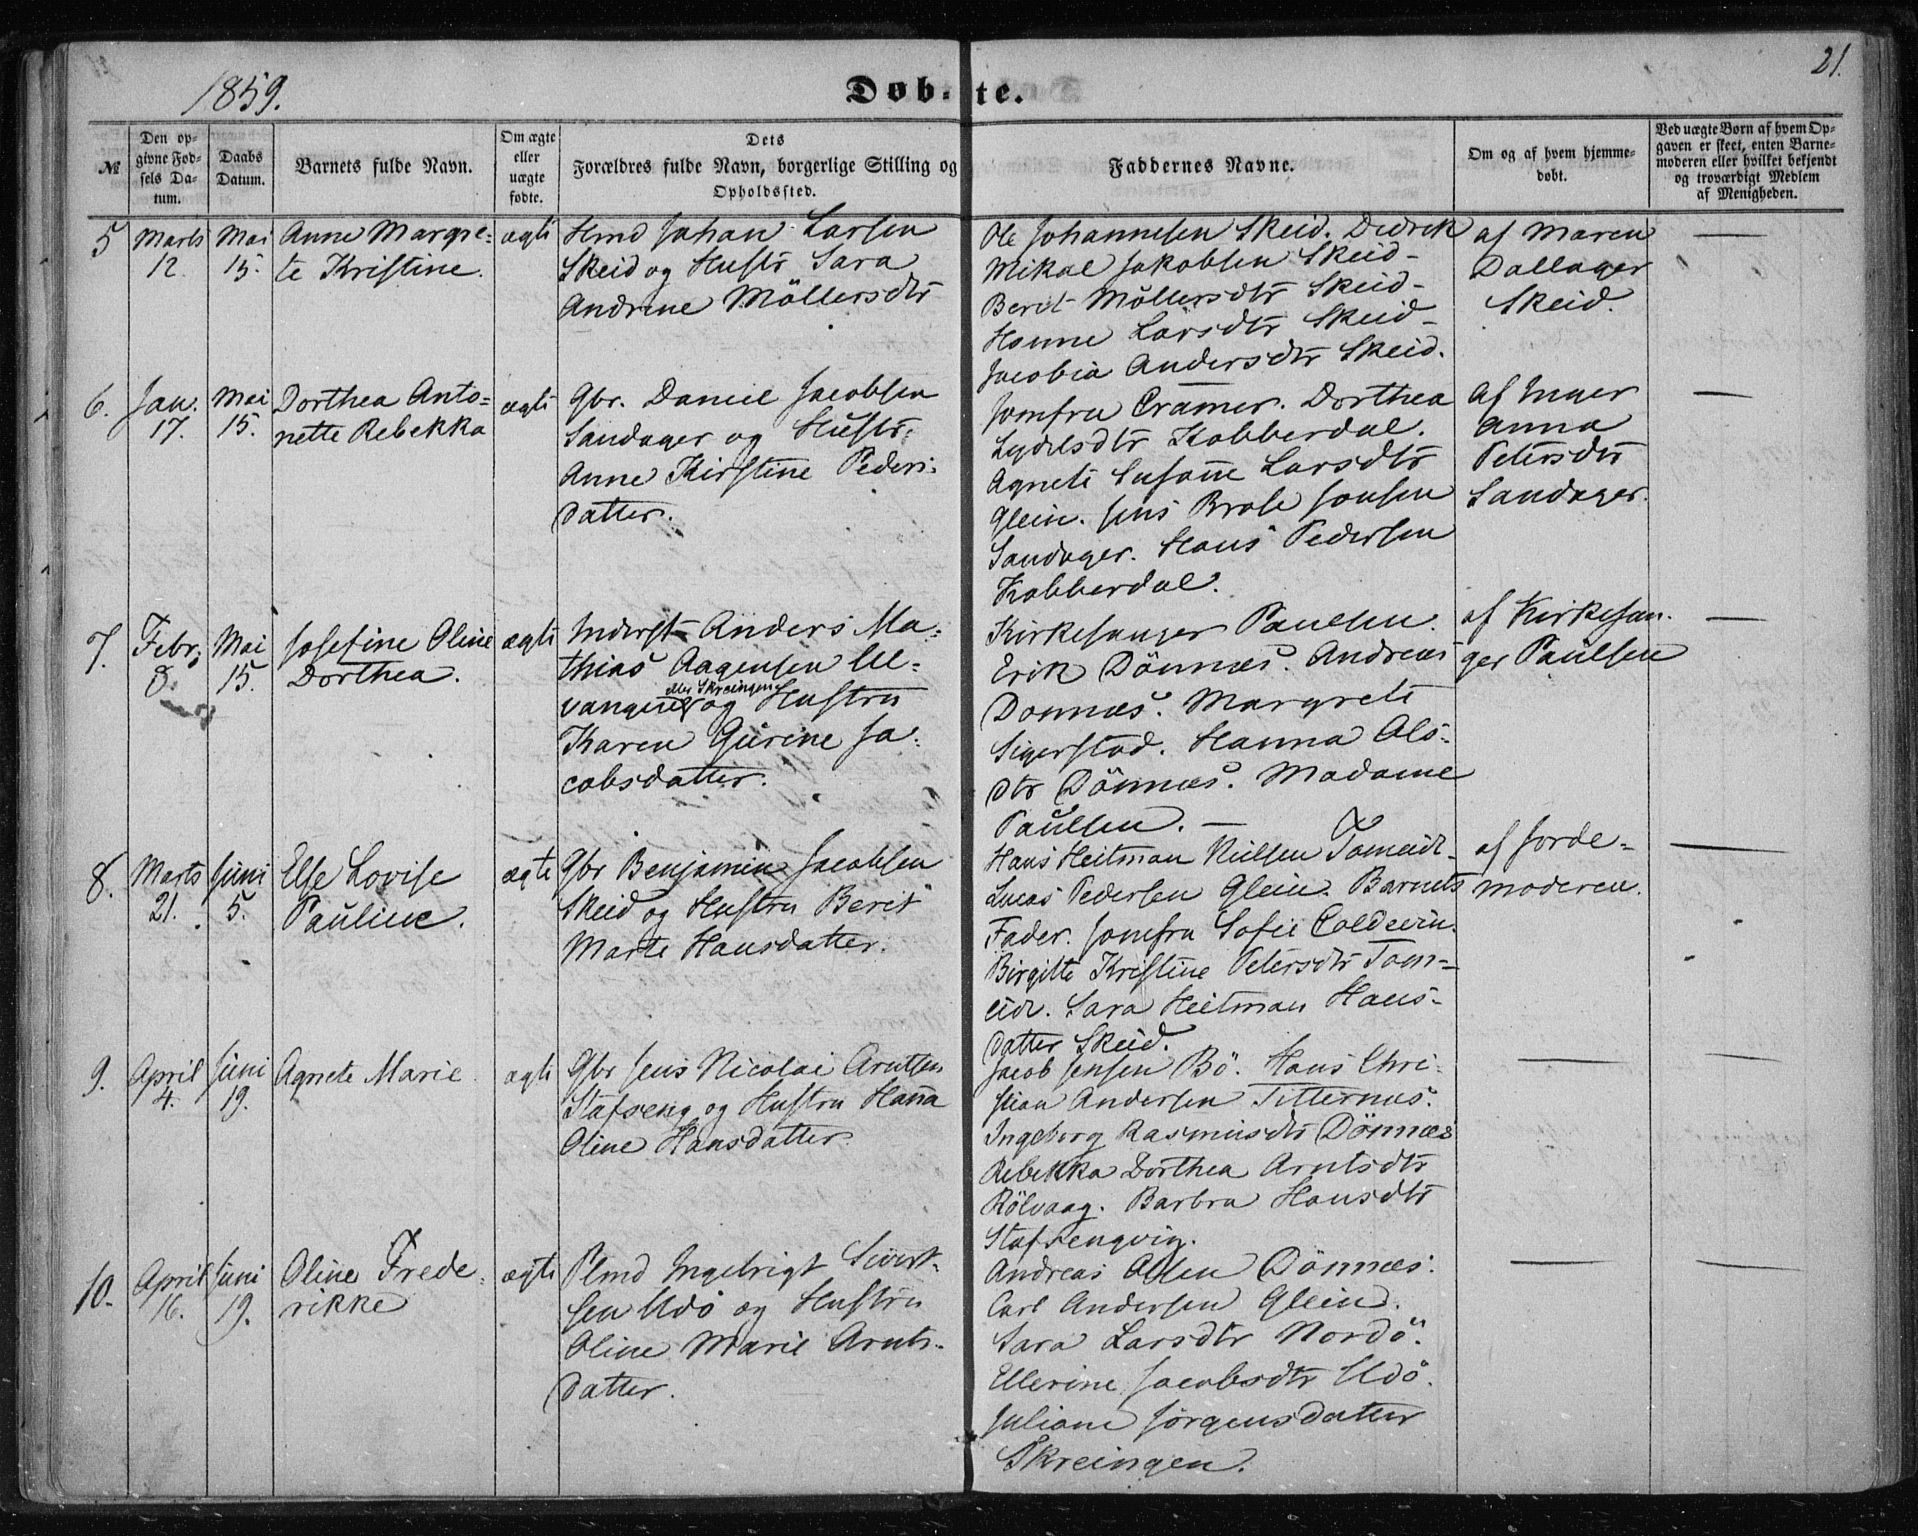 1859.
Døb-te.
21.
№
Den op-
givne Fød-
sels Da-
tum.
Daabs
Datum.
Barnets fulde Navn.
Om ægte
eller
uægte
fødte.
Dets
Forældres fulde Navn, borgerlige Stilling og
Opholdssted.
Faddernes Navne.
Om og af hvem hjemme-
døbt.
Ved uægte Børn af hvem Op-
gaven er skeet, enten Barne-
moderen eller hvilket bekjendt
og troværdigt Medlem
af Menigheden.
5
Marts
12.
Mai
15.
Anne Margre-
te Kristine.
ægte
Hmd Johan Larsen
Skeid og Hustr Sara
Andrine Möllersdtr
Ole Johannesen Skeid. Didrik
Mikal Jakobsen Skeid-
Berit Möllersdtr Skeid-
Hanne Larsdtr Skeid-
Jacobia Andersdtr Skeid.
af Maren
Dallager
Skeid.
—
6.
Jan.
17.
Mai
15.
Dorthea Anto-
nette Rebekka
ægte
Gbr. Daniel Jacobsen
Sandager og Hustr.
Anne Kirstine Peders-
datter.
Jomfru Cramer. Dorthea
Lydelsdtr Kobberdal.
Agnete Susanne Larsdtr
Glein. Jens Brose Jonsen
Sandager. Hans Pedersen
Kobberdal.
af Inger
Anna
Petersdtr
Sandager.
—
7.
Febr.
8.
Mai
15.
Josefine Oline
Dorthea.
ægte
Inderst Anders Ma-
thias Aagensen
eller Skreingen
og Hustru
Karen Gurine Ja-
cobsdatter.
Kirkesanger Paulsen.
Erik Dönnæs. Andreas
Donnæs. Margrete
Sigerstad. Hanna Ols-
dtr Dönnæs. Madame
Paulsen. —
af Kirkesan-
ger Paulsen
—
8.
Marts
21.
Juni
5.
Else Lovise
Pauline.
ægte
Gbr Benjamin Jacobsen
Skeid og Hustru Berit
Marte Hansdatter.
Hans Heitman Nielsen Tomeidt-
Lucas Pedersen Glein. Barnets
Fader. Jomfru Sofie Coldevin.
Birgitte Kristine Petersdtr Tom-
eidt. Sara Heitman Hans-
datter Skeid.
af Jorde-
moderen.
—
9.
April
4.
Juni
19.
Agnete Marie
ægte
Gbr Jens Nicolai Arntsen
Stafseng og Hustru Hanna
Oline Hansdatter.
Jacob Jensen Bö. Hans Chri-
stian Andersen Titternæs.
Ingeborg Rasmusdtr Dönnæs
Rebekka Dorthea Arntsdtr
Rölvaag. Barbra Hansdtr
Stafsengvig.
—
—
10.
April
16.
Juni
19.
Oline Frede-
rikke
ægte
Plmd Ingebrigt Sivert-
sen Udö og Hustru
Oline Marie Arnts-
datter.
Andreas Olsen Dönnæs.
Carl Andersen Glein.
Sara Larsdtr Nordö.
Ellerine Jacobsdtr Udö.
Juliane Jörgensdatter
Skreingen.
—
—